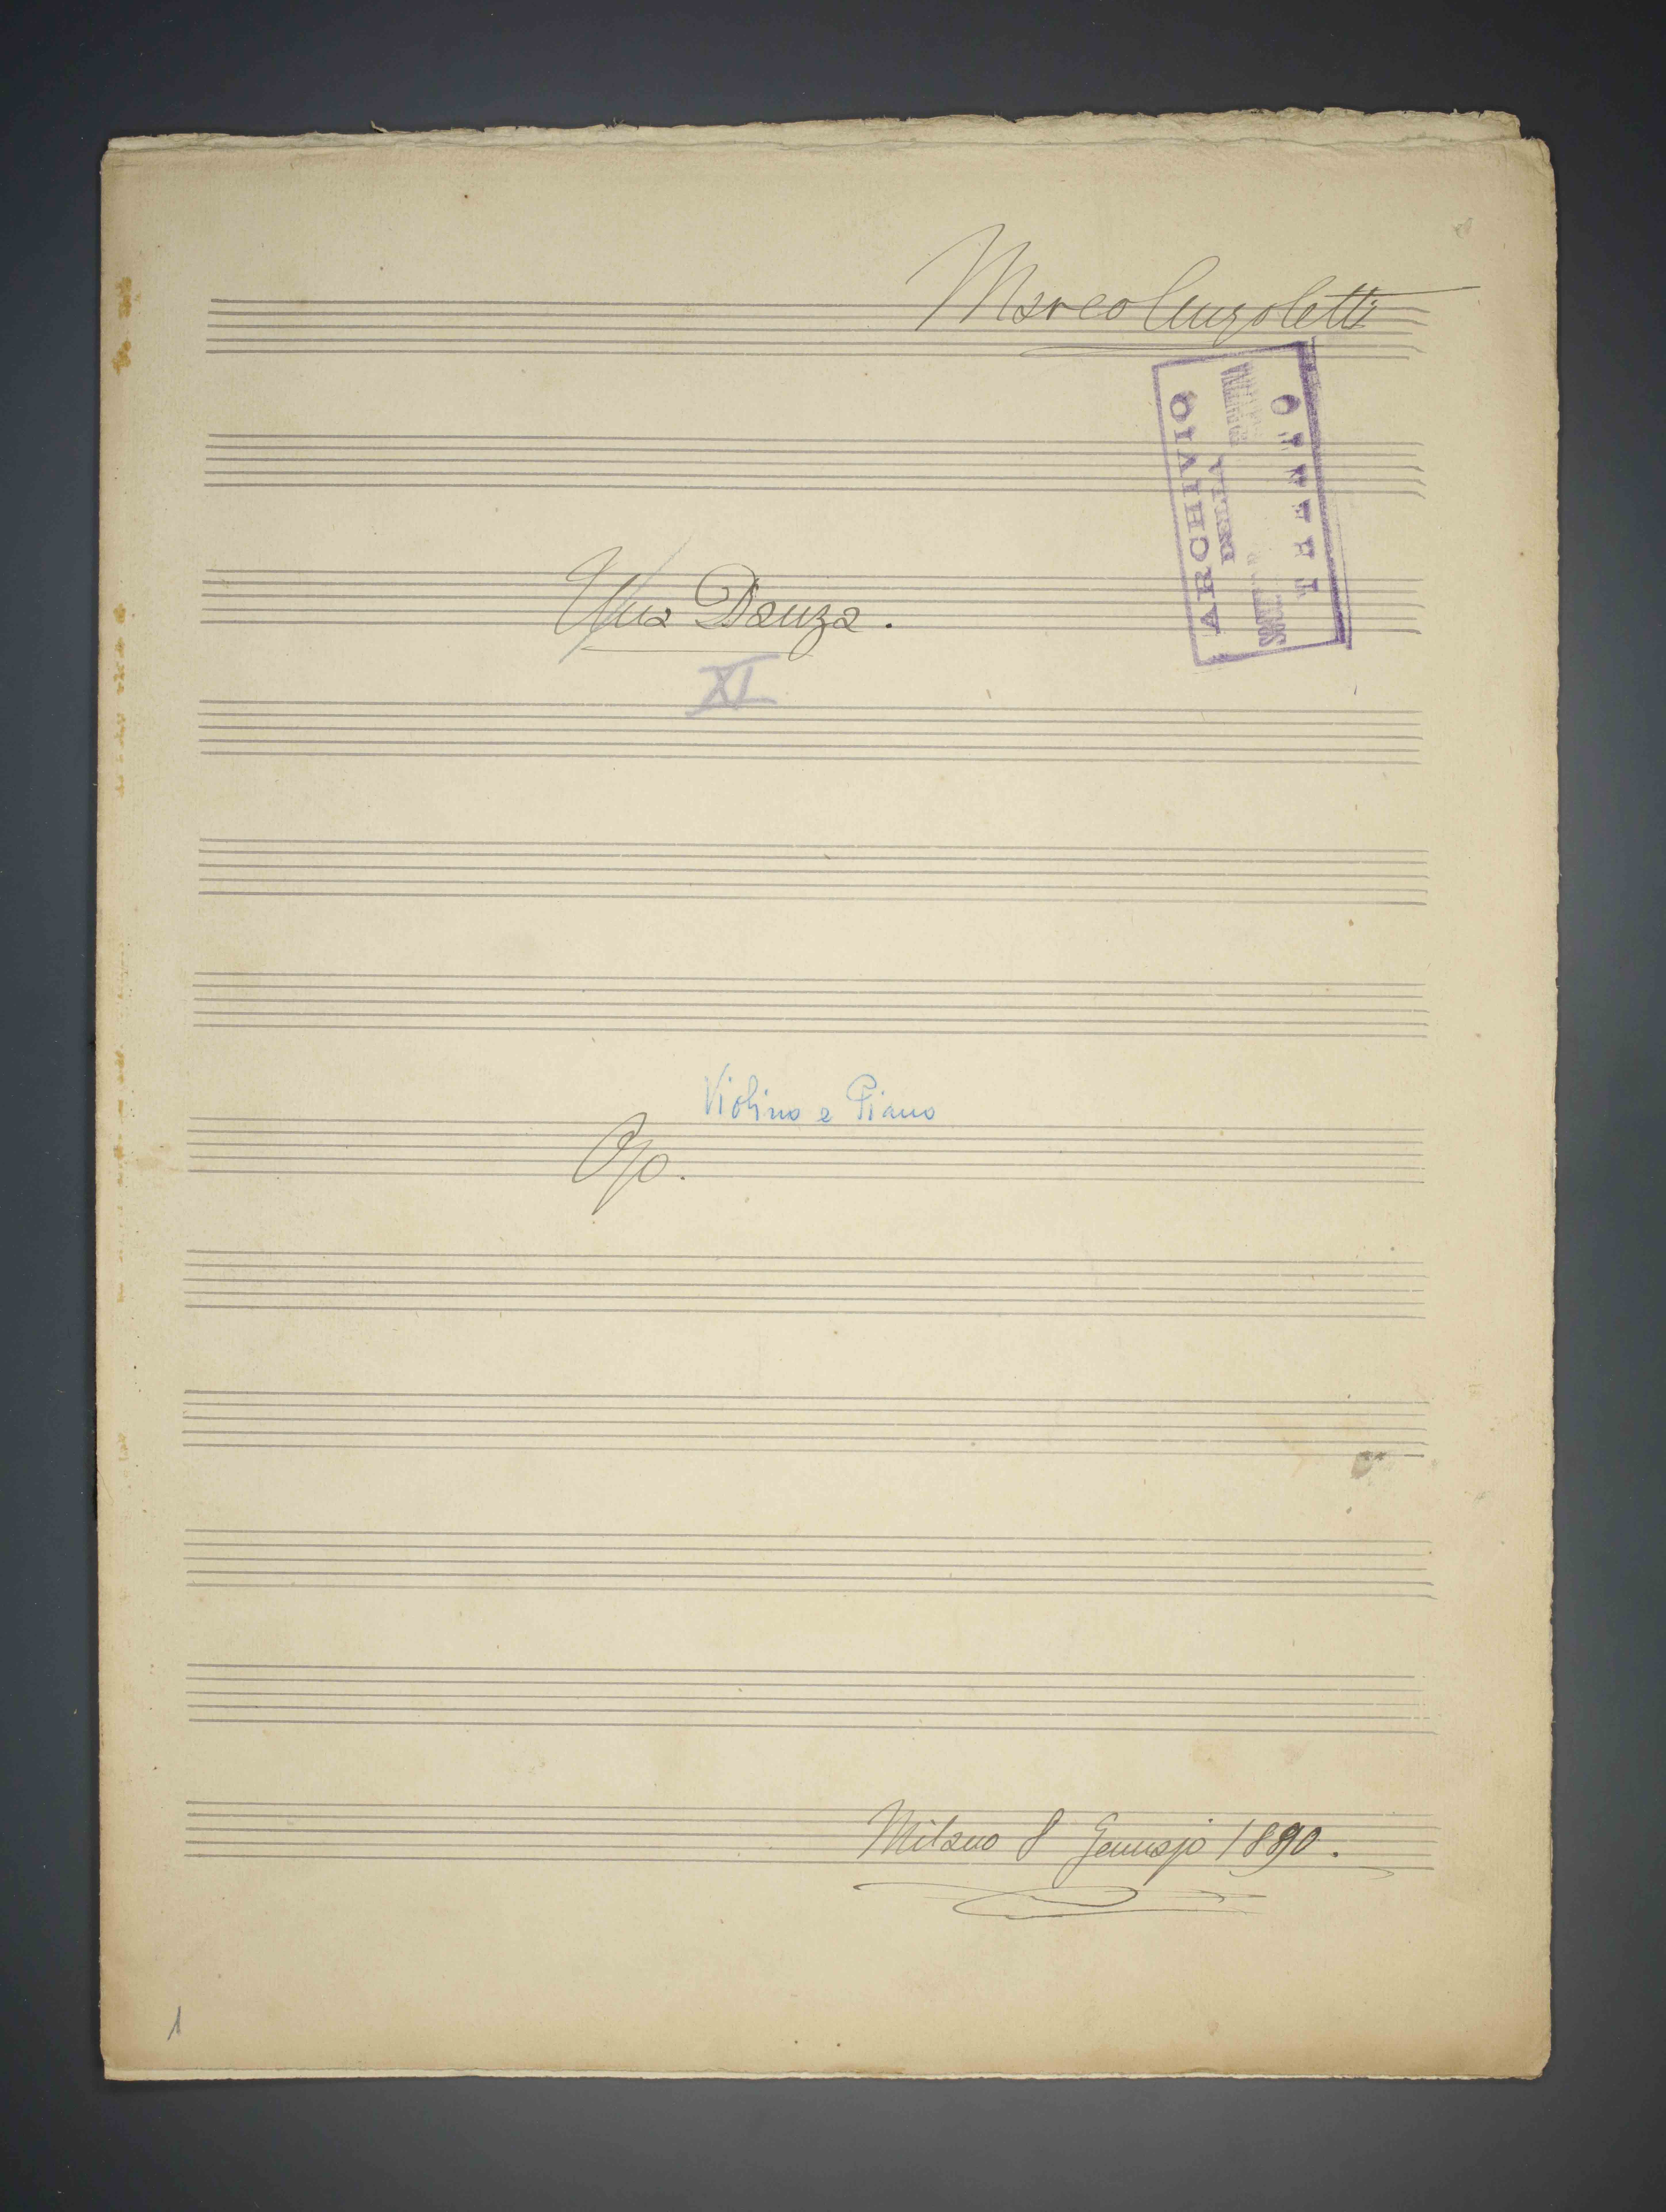 Marco Anzoletti
ARCHIVIO
DELLA
TRENTO
Una Danza.
XI
Violino e Piano
Op.
Milano 8 Gennajo 1890.
1